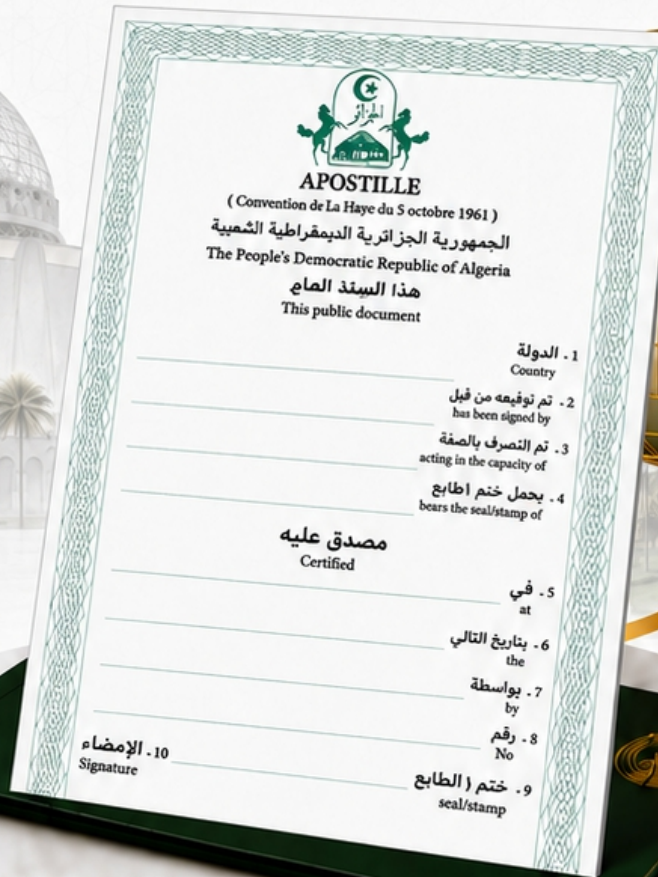 الجزائر
APOSTILLE
( Convention de La Haye du 5 octobre 1961 )
الجمهورية الجزائرية الديمقراطية الشعبية
The People's Democratic Republic of Algeria
هذا السند العام
This public document
1. الدولة
Country
2. تم توقيعه من قبل
has been signed by
3. تم التصرف بالصفة
acting in the capacity of
4. يحمل ختم اطابع
bears the seal/stamp of
مصدق عليه
Certified
5. في
at
6. بتاريخ التالي
the
7. بواسطة
by
8. رقم
No
9. ختم ( الطابع
seal/stamp
10. الإمضاء
Signature